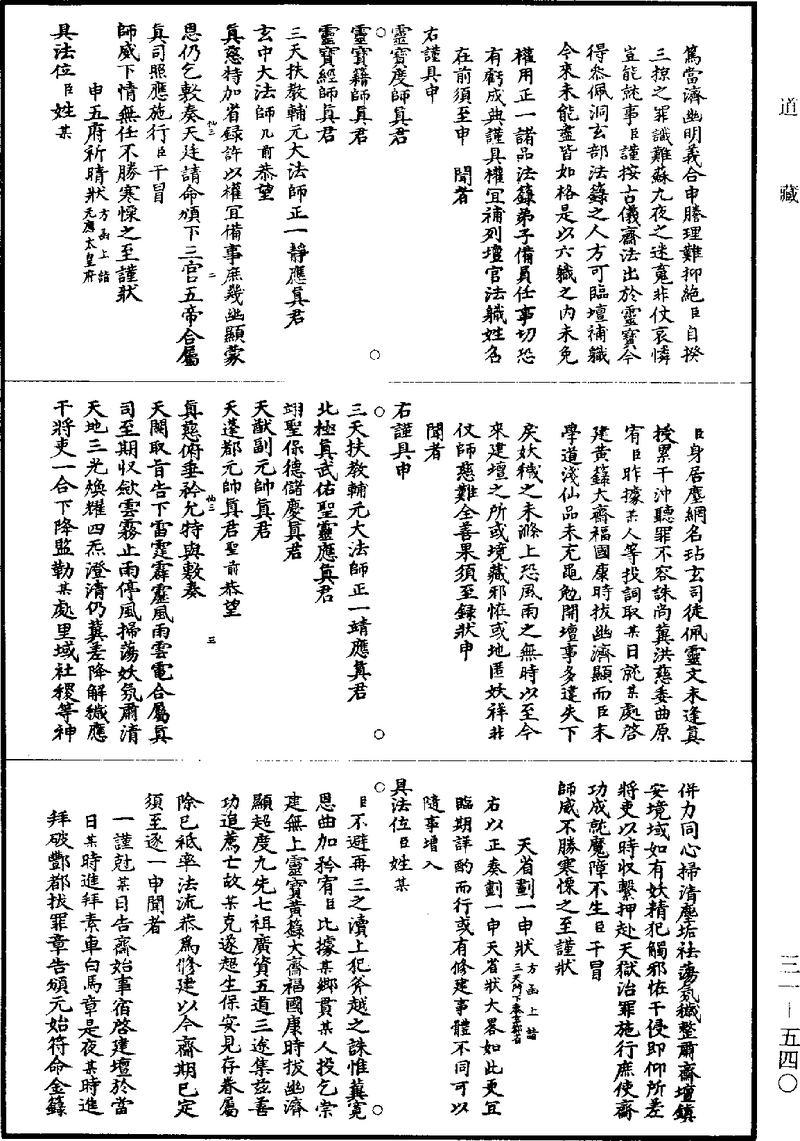 道藏
三一—五四〇
篤當濟幽明義合申勝理難抑絕臣自揆
三掠之罪識難蘇九夜之迷冤非仗哀憐
豈能就事臣謹按古儀齋法出於靈寶今
得忝佩洞玄部法籙之人方可臨壇補職
今來未能盡皆如格是以六職之內未免
權用正一諸品法籙弟子備員任事切恐
有虧成典謹具權冝補列壇官法職姓名
在前須至申 聞者
右謹具申
靈寶度師真君
靈寶籍師真君
靈寶經師真君
三天扶教輔元大法師正一靜應真君
玄中大法師几前恭望
真慈特加省錄許以權冝備事庶幾幽顯蒙
恩仍乞敷奏天廷請命頒下三官五帝合屬
真司照應施行臣干冒
師威下情無任不勝寒慄之至謹狀
申五府祈晴狀方函上詣元應太皇府
具法位臣姓某
臣身居塵網名玷玄司徒佩靈文未逢真
授累干沖聽罪不容誅尚冀洪慈委曲原
宥臣昨據某人等投詞取某日就某處啓
建黃籙大齋福國康時拔幽濟顯而臣未
學道淺仙品未充黽勉開壇事多違失下
戾妖穢之未滌上恐風雨之無時以至今
來建壇之所或境藏邪恠或地匿妖祥非
仗師慈難全善果須至錄狀申
聞者
右謹具申
三天扶教輔元大法師正一靖應真君
北極真武佑聖靈應真君
翊聖保德儲慶真君
天猷副元帥真君
天蓬都元帥真君聖前恭望
真慈俯垂衿允特與敷奏
天闕取旨告下雷霆霹靂風雨雲電合屬真
司至期收斂雲霧止雨停風掃蕩妖氛肅清
天地三光煥耀四炁澄清仍冀差降解穢應
干將吏一合下降監勒某處里域社稷等神
併力同心掃清塵垢袪蕩氛穢整肅齋壇鎮
安境域如有妖精犯觸邪恠干侵即仰所差
將吏以時收繫押赴天獄治罪施行庶使齋
功成就魔障不生臣干冒
師威不勝寒慄之至謹狀
天省劄一申狀方函上詣三天門下泰玄都省
右以正奏劄一申天省狀大畧如此更冝
臨期詳酌而行或有修建事體不同可以
隨事增入
具法位臣姓某
臣不避再三之瀆上犯斧越之誅惟冀寬
恩曲加矜宥臣比據某鄉貫某人投乞崇
建無上靈寶黃籙大齋福國康時拔幽濟
顯超度九先七祖廣資五道三途集茲善
功追薦亡故某克遂超生保安見存眷屬
除已祗率法流恭為修建以今齋期已定
須至逐一申聞者
一謹尅某日告齋始事宿啓建壇於當
日某時進拜素車白馬章是夜某時進
拜破酆都拔罪章告頒元始符命金籙